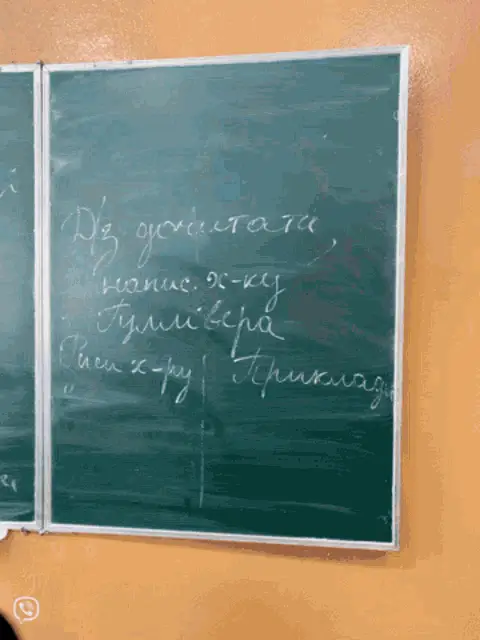 Д/з дочитати,
напис. х-ку
Гуллівера
Риси х-ру | Приклади